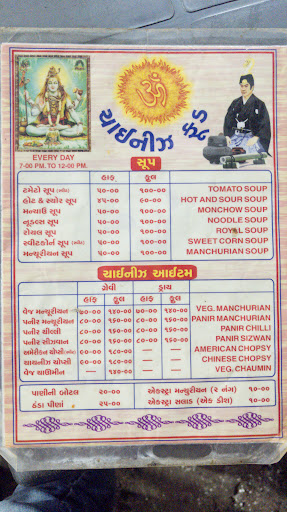 ॐ
ચાઈનીઝ ફૂડ
EVERY DAY
7-00 PM. TO 12-00 PM.
સૂપ
હાફ ફૂલ
ટમેટો સૂપ ૫૦-૦૦ ૧૦૦-૦૦ TOMATO SOUP
હોટ & સ્યોર સૂપ ૪૫-૦૦ ૯૦-૦૦ HOT AND SOUR SOUP
મન્ચાઉ સૂપ ૫૦-૦૦ ૧૦૦-૦૦ MONCHOW SOUP
નુડલ્સ સૂપ ૫૦-૦૦ ૧૦૦-૦૦ NOODLE SOUP
રોયલ સૂપ ૫૦-૦૦ ૧૦૦-૦૦ ROYAL SOUP
સ્વીટકોર્ન સૂપ ૫૦-૦૦ ૧૦૦-૦૦ SWEET CORN SOUP
મન્ચુરીયન સૂપ ૫૦-૦૦ ૧૦૦-૦૦ MANCHURIAN SOUP
ચાઈનીઝ આઈટમ
ગ્રેવી ડ્રાય
હાફ ફૂલ હાફ ફૂલ
વેજ મન્ચુરીયન ૭૦-૦૦ ૧૪૦-૦૦ ૭૦-૦૦ ૧૪૦-૦૦ VEG. MANCHURIAN
પનીર મન્ચુરીયન ૮૦-૦૦ ૧૬૦-૦૦ ૮૦-૦૦ ૧૬૦-૦૦ PANIR MANCHURIAN
પનીર ચીલ્લી ૮૦-૦૦ ૧૬૦-૦૦ ૮૦-૦૦ ૧૬૦-૦૦ PANIR CHILLI
પનીર સીઝવાન ૮૦-૦૦ ૧૬૦-૦૦ ૮૦-૦૦ ૧૬૦-૦૦ PANIR SIZWAN
અમેરીકન ચોપ્સી ૧૮૦-૦૦ — — AMERICAN CHOPSY
ચાયનીઝ ચોપ્સી ૧૮૦-૦૦ — — CHINESE CHOPSY
વેજ ચાઊમીન — ૧૪૦-૦૦ — — VEG. CHAUMIN
પાણીની બોટલ ૨૦-૦૦ એકસ્ટ્રા મન્ચુરીયન (૨ નંગ) ૧૦-૦૦
ઠંડા પીણાં ૨૫-૦૦ એકસ્ટ્રા સલાડ (એક ડીશ) ૧૦-૦૦